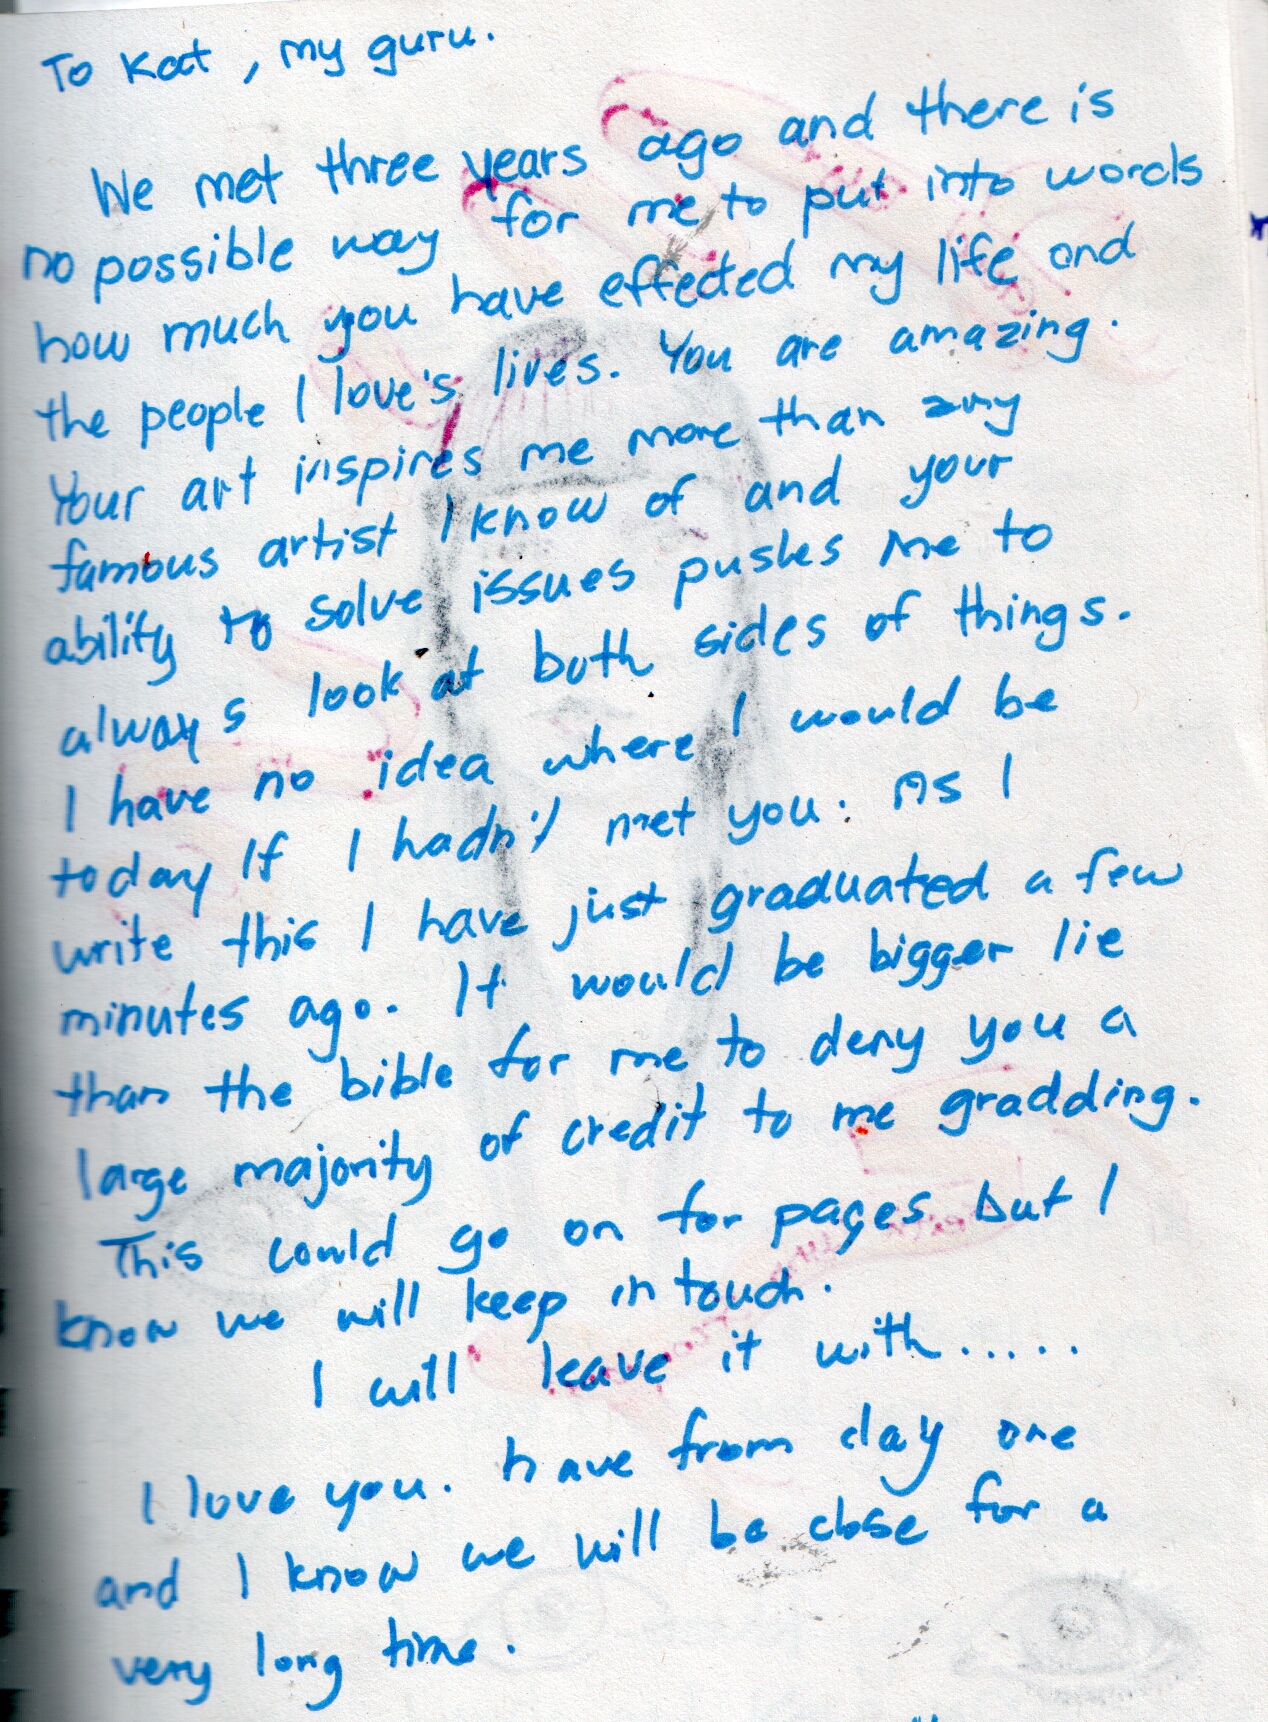 To Kat, my guru.
We met three years ago and there is
no possible way for me to put into words
how much you have effected my life and
the people I love's lives. You are amazing.
Your art inspires me more than any
famous artist I know of and your
ability to solve issues pushes me to
always look at both sides of things.
I have no idea where I would be
today If I hadn't met you. As I
write this I have just graduated a few
minutes ago. It would be bigger lie
than the bible for me to deny you a
large majority of credit to me gradding.
This could go on for pages but I
know we will keep in touch.
I will leave it with.....
I love you. have from day one
and I know we will be close for a
very long time.